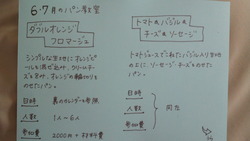 6・7月のパン教室
ダブルオレンジ
フロマージュ
シンプルな生地にオレンジピ
ールを混ぜ込み、クリームチー
ズを包み、オレンジの輪切りを
のせたパン。
日時 裏のカレンダー参照
人数 1人〜6人
参加費 2000円+材料費
トマト&バジル&
チーズ&ソーセージ
トマトジュースでこねたバジル入り生地
の上に、ソーセージ・チーズをのせた
パン。
日時
人数 同左
参加費